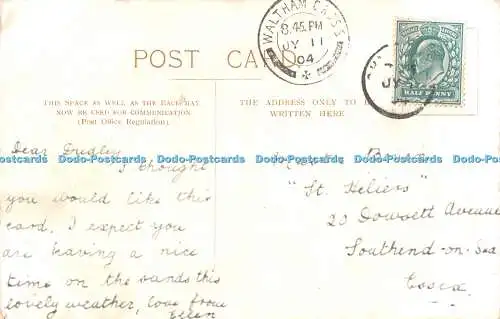 WALTHAM CROSS
8.45 PM
JY 11
04
POST CARD
HALF PENNY
THIS SPACE AS WELL AS THE BACK MAY
NOW BE USED FOR COMMUNICATION
(Post Office Regulation).
THE ADDRESS ONLY TO
WRITTEN HERE
Dear
I thought
you would like this
card. I expect you
are having a nice
time on the sands this
lovely weather, love from
Ellen
"St. Heliers"
20 Dowsett Avenue
Southend-on-Sea
Essex
Dodo-Postcards Dodo-Postcards Dodo-Postcards Dodo-Postcards Dodo-Postcards Dodo-Postcards
Dodo-Postcards Dodo-Postcards Dodo-Postcards Dodo-Postcards Dodo-Postcards Dodo-Postcards